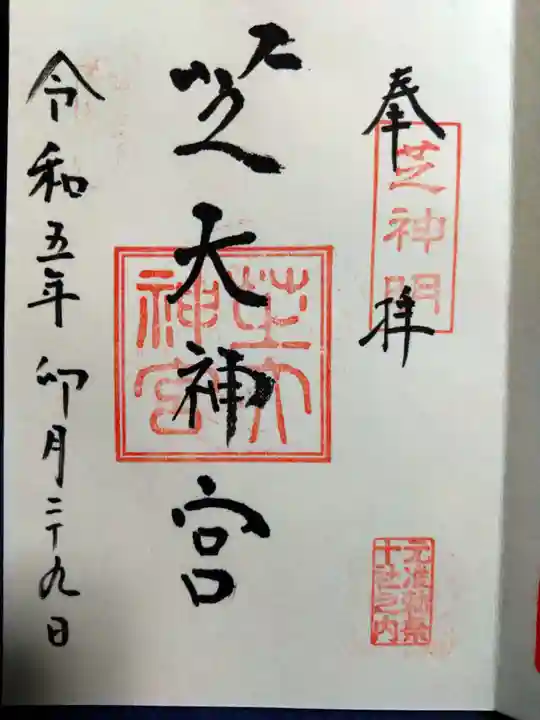 奉拝
芝神明
元准勅祭
十社之内
芝大神宮
芝大
神宮
令和五年卯月二十九日